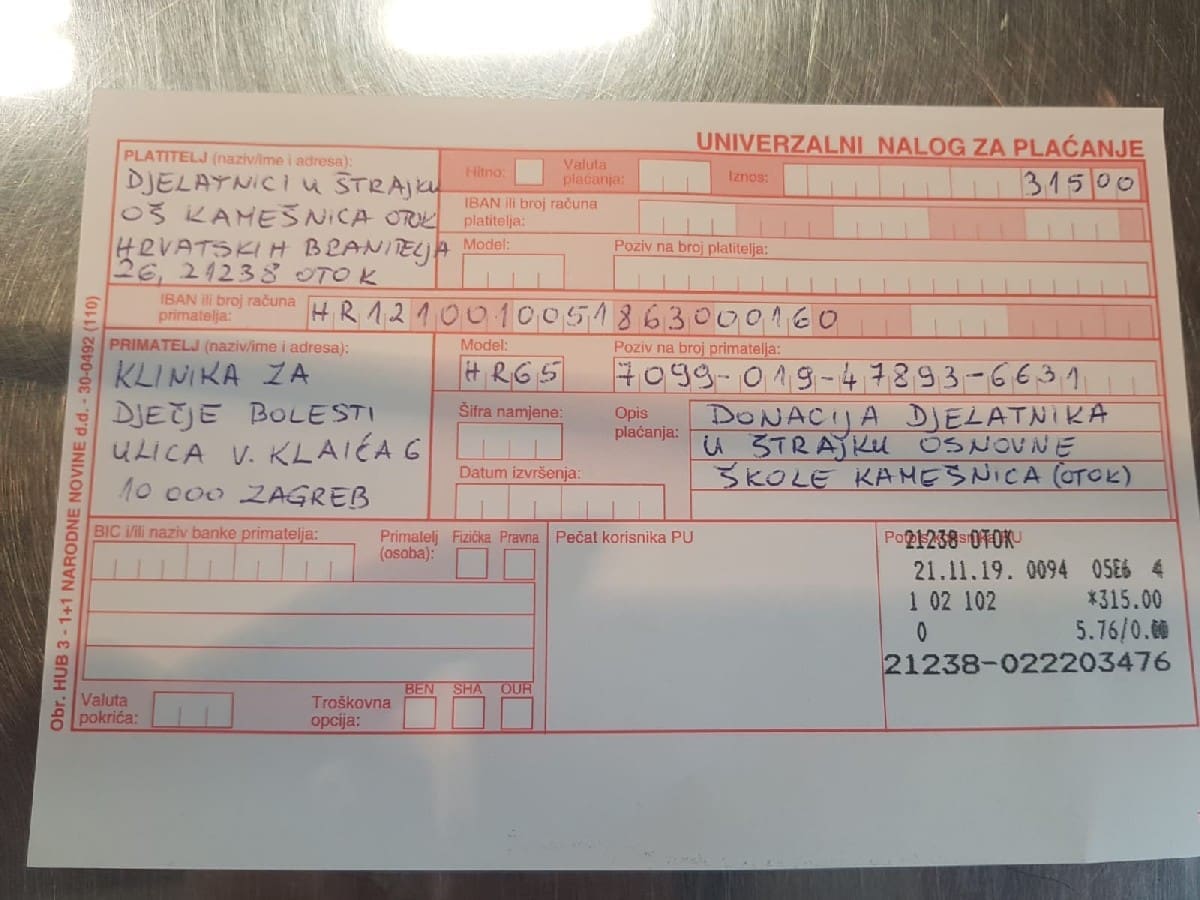 UNIVERZALNI NALOG ZA PLAĆANJE
PLATITELJ (naziv/ime i adresa):
DJELATNICI U ŠTRAJKU
OŠ KAMEŠNICA OTOK
HRVATSKIH BRANITELJA
26, 21238 OTOK
Hitno:
Valuta plaćanja:
Iznos: 31500
IBAN ili broj računa platitelja:
Model:
Poziv na broj platitelja:
IBAN ili broj računa primatelja:
HR1210010051863000160
PRIMATELJ (naziv/ime i adresa):
KLINIKA ZA
DJEČJE BOLESTI
ULICA V. KLAIĆA 6
10 000 ZAGREB
Model:
HR65
Poziv na broj primatelja:
7099-019-47893-6631
Šifra namjene:
Datum izvršenja:
Opis plaćanja:
DONACIJA DJELATNIKA
U ŠTRAJKU OSNOVNE
ŠKOLE KAMEŠNICA (OTOK)
BIC i/ili naziv banke primatelja:
Primatelj (osoba):
Fizička
Pravna
Valuta pokrića:
Troškovna opcija:
BEN
SHA
OUR
Pečat korisnika PU
Potpis korisnika PU
21238 OTOK
21.11.19. 0094 05E6 4
1 02 102 *315.00
0 5.76/0.00
21238-022203476
Obr. HUB 3 - 1+1 NARODNE NOVINE d.d. - 30-0492 (110)